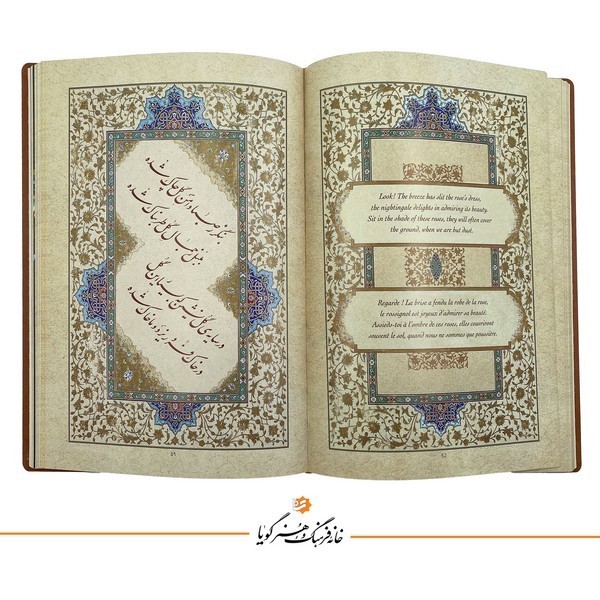 بنگر ز صبا دامن گل چاک شده
بلبل ز جمال گل طربناک شده
در سایه گل نشین که بسیار این گل
در خاک فرو ریزد و ما خاک شده
Look! The breeze has slit the rose's dress,
the nightingale delights in admiring its beauty.
Sit in the shade of these roses, they will often cover
the ground, when we are but dust.
Regarde ! La brise a fendu la robe de la rose,
le rossignol est joyeux d'admirer sa beauté.
Assieds-toi à l'ombre de ces roses, elles couvriront
souvent le sol, quand nous ne sommes que poussière.
خانه فرهنگ و هنر گویا